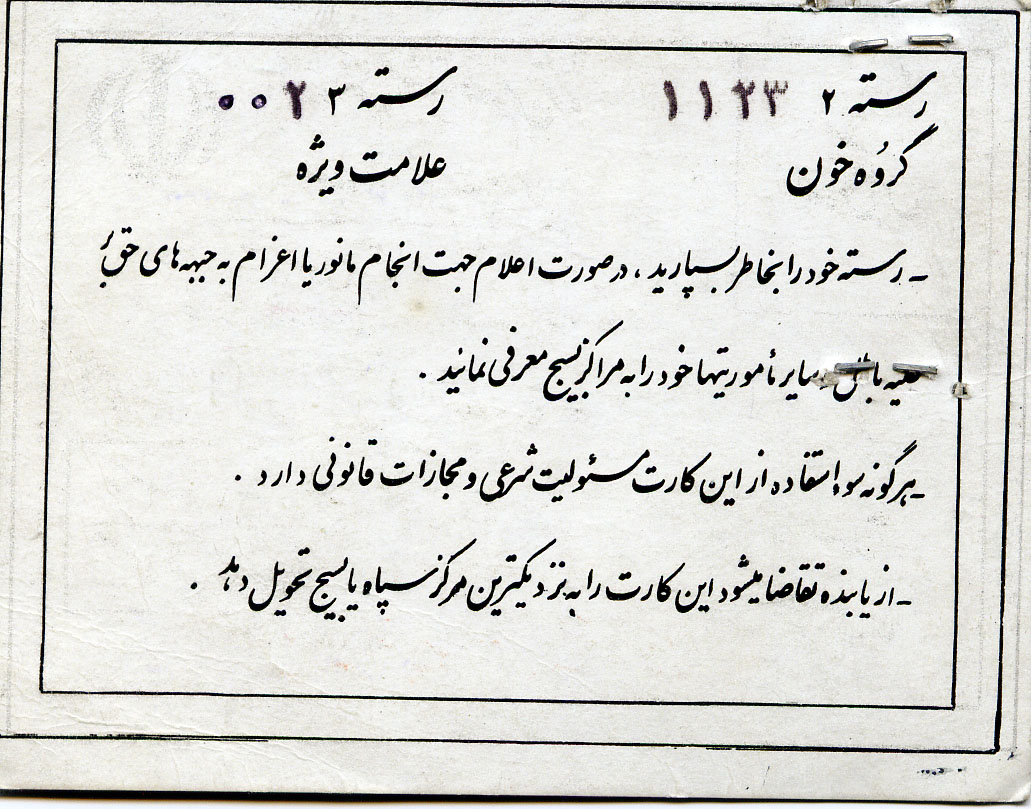 رسته ۲ ۱۱۲۳ رسته ۳ ۰۰۲
گروه خون علامت ویژه
- رسته خود را بخاطر بسپارید ، در صورت اعلام جهت انجام مانور یا اعزام به جبهه های حق بر
علیه باطل سایر مأموریتها خود را به مراکز بسیج معرفی نمائید .
- هرگونه سوء استفاده از این کارت مسئولیت شرعی و مجازات قانونی دارد .
- از یابنده تقاضا میشود این کارت را به نزدیکترین مرکز سپاه یا بسیج تحویل دهد .